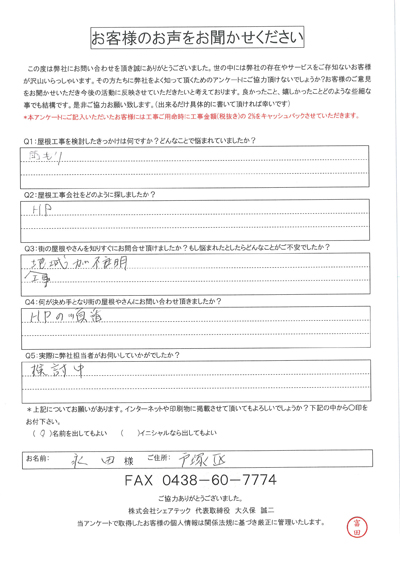 お客様のお声をお聞かせください
この度は弊社にお問い合わせを頂き誠にありがとうございました。世の中には弊社の存在やサービスをご存知ないお客様
が沢山いらっしゃいます。その方たちに弊社をよく知って頂くためのアンケートにご協力頂けないでしょうか?お客様のご意見
をお聞かせいただき今後の活動に反映させていただきたいと考えております。良かったこと、嬉しかったことどのような些細な
事でも結構です。是非ご協力お願い致します。(出来るだけ具体的に書いて頂ければ幸いです)
*本アンケートにご記入いただいたお客様には工事ご用命時に工事金額(税抜き)の2%をキャッシュバックさせていただきます。
Q1:屋根工事を検討したきっかけは何ですか?どんなことで悩まれていましたか?
雨もり
Q2:屋根工事会社をどのように探しましたか?
HP
Q3:街の屋根やさんを知りすぐにお問合せ頂けましたか?もし悩まれたとしたらどんなことがご不安でしたか?
地域が不明
工事
Q4:何が決め手となり街の屋根やさんにお問い合わせ頂きましたか?
HPの
Q5:実際に弊社担当者がお伺いしていかがでしたか?
検討中
*上記についてお願いがあります。インターネットや印刷物に掲載させて頂いてもよろしいでしょうか?下記の中から〇印を
お付下さい。
(〇)名前を出してもよい ( )イニシャルなら出してもよい
お名前: 永田 様 ご住所: 戸塚区
FAX 0438-60-7774
ご協力ありがとうございました。
株式会社シェアテック 代表取締役 大久保 誠二
当アンケートで取得したお客様の個人情報は関係法規に基づき厳正に管理いたします。
富田